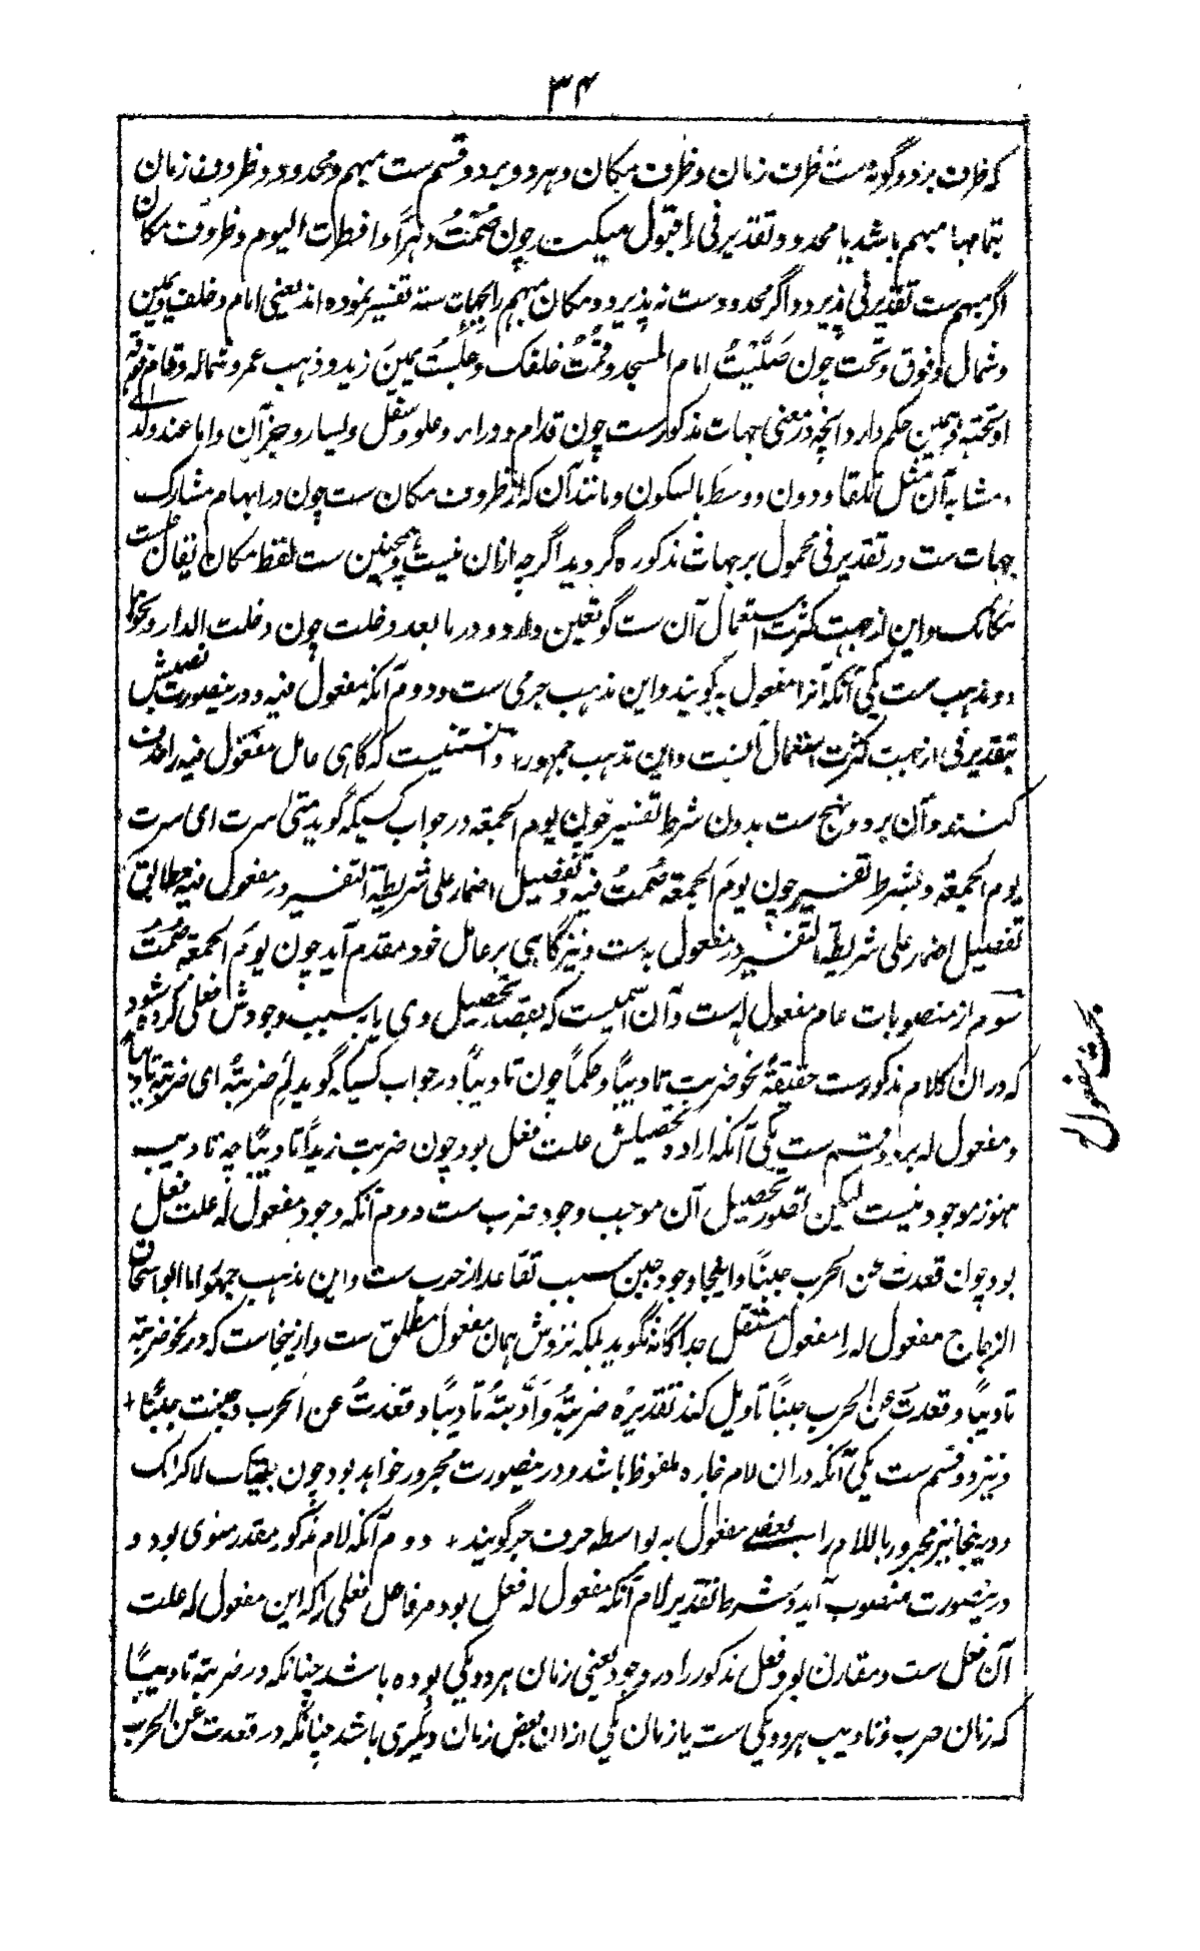 ۳۴
که ظرف بر دو گونه ست ظرف زمان و ظرف مکان و هر دو بر دو قسم ست مبهم و محدود و ظروف زمان
بتمامها مبهم باشد یا محدود و تقدیر فی را قبول میکند چون صُمْتُ دهرًا و افطرت الیوم و ظروف مکان
اگر مبهم ست تقدیر فی پذیرد و اگر محدود ست نه پذیرد و مکان مبهم را بجهات سته تفسیر نموده اند یعنی امام و خلف و یمین
و شمال و فوق و تحت چون صَلَّیْتُ امام المسجد و قُمْتُ خلفک و جلَسْتُ یمینَ زید و ذهب عمرو شماله و قام فوقه
او تحته و همین حکم دارد آنچه در معنی جهات مذکور ست چون قدام و وراء و علو و سفل و یسار و جز آن و اما عند و لدی
و مشابه آن مثل تلقا و دون و وسط بالسکون و مانند آن که از ظروف مکان ست چون در ابهام مشارک
جهات ست در تقدیر فی محمول بر جهات مذکوره گردید اگر چه ازان نیست و همچنین ست لفظ مکان یقال جلست
مکانک و این از جهت کثرت استعمال آن ست گو تعین دارد و در ما بعد دخلت چون دخلت الدار و نحوها
دو مذهب ست یکی آنکه آنرا مفعول به گویند و این مذهب جرمی ست و دوم آنکه مفعول فیه و درینصورت نصبش
بتقدیر فی از جهت کثرت استعمال آنست و این مذهب جمهور + دانستنیست که گاهی عامل مفعول فیه را حذف
کنند و آن بر دو نهج ست بدون شرط تفسیر چون یوم الجمعة در جواب کسیکه گوید متی سرت ای سرت
یوم الجمعة و بشرط تفسیر چون یومَ الجمعة صُمتُ فیه و تفصیل اضمار علی شریطة التفسیر در مفعول فیه مطابق
تفصیل اضمار علی شریطة التفسیر در مفعول به ست و نیز گاهی بر عامل خود مقدم آید چون یومَ الجمعة صُمتُ
سوم از منصوبات عام مفعول له ست و آن اسمیست که بقصد تحصیل وی یا بسبب وجودش فعلی کرده شود
که دران کلام مذکور ست حقیقةً نحو ضربت تادیبًا و حکمًا چون تادیبًا در جواب کسیکه گوید لِمَ ضربتَه ای ضربته تادیبًا
و مفعول له بر دو قسم ست یکی آنکه اراده تحصیلش علت فعل بود چون ضربت زیدًا تادیبًا چه تادیب
هنوز موجود نیست لیکن تصور تحصیل آن موجب وجود ضرب ست دوم آنکه وجود مفعول له علت فعل
بود چون قعدت عن الحرب جبنًا و اینجا وجود جبن سبب تقاعد از حرب ست و این مذهب جمهور اما ابو اسحاق
الزجاج مفعول له را مفعول مستقل جداگانه نگوید بلکه نزدش همان مفعول مطلق ست و ازینجاست که در نحو ضربته
تادیبًا و قعدتُ عن الحرب جبنًا تاویل کند تقدیرُه ضربتُه وَ اَدَّبتُه تادیبًا و قعدتُ عن الحرب و جبنت جبنًا +
و نیز دو قسم ست یکی آنکه دران لام جاره ملفوظ باشد و درینصورت مجرور خواهد بود چون جئتک لاکرامک
و درینجا نیز مجرور باللام را بعضی مفعول به بواسطه حرف جر گویند + دوم آنکه لام مذکور مقدر منوی بود و
درینصورت منصوب آید و شرط تقدیر لام آنکه مفعول له فعل بود مر فاعل فعلی را که این مفعول له علت
آن فعل ست و مقارن بود فعل مذکور را در وجود یعنی زمان هر دو یکی بوده باشد چنانکه در ضربته تادیبًا
که زمان ضرب و تادیب هر دو یکی ست یا زمان یکی ازان بعض زمان دیگری باشد چنانکه در قعدت عن الحرب
بحث مفعول له